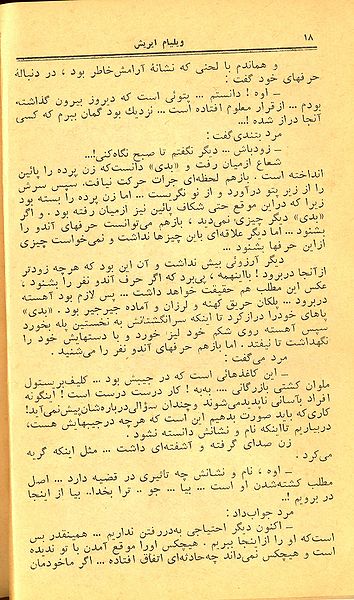 ۱۸
ویلیام ایریش
و هماندم با لحنی که نشانهٔ آرامش‌خاطر بود ، در دنبالهٔ
حرفهای خود گفت :
ــ اوه ! دانستم ... پتوئی است که دیروز بیرون گذاشته
بودم ... ازقرار معلوم افتاده است ... نزدیك بود گمان ببرم که کسی
آنجا دراز شده !...
مرد بتندی‌گفت :
ــ زودباش ... دیگر نگفتم تا صبح نگاه‌کنی!...
شعاع ازمیان رفت و «بدی» دانست‌که زن پرده را پائین
انداخته است . بازهم لحظه‌ای جرات حرکت نیافت. سپس سرش
را از زیر پتو درآورد و از نو نگریست ... اما زن پرده را بسته بود
زیرا که دراین موقع حتی شکاف پائین نیز ازمیان رفته بود . و اگر
«بدی» دیگر چیزی نمی‌دید ، بازهم می‌توانست حرفهای آندو را
بشنود ... اما دیگر علاقه‌ای باین چیزها نداشت و نمی‌خواست چیزی
ازاین حرفها بشنود ...
دیگر آرزوئی بیش نداشت و آن این بود که هرچه زودتر
ازآنجا دربرود ! بااینهمه ، پی‌برد که اگر حرف آندو نفر را بشنود ،
عکس این مطلب هم حقیقت خواهد داشت ... پس لازم بود آهسته
دربرود ... پلکان حریق کهنه و لرزان و آماده جیرجیر بود . «بدی»
پاهای خودرا درازکرد تا اینکه سرانگشتانش به نخستین پله بخورد
سپس آهسته روی شکم خود لیز خورد و با دستهایش خود را
نگهداشت تا نیفتد . اما بازهم حرفهای آندو نفر را می‌شنید .
مرد می‌گفت :
ــ این کاغذهائی است که در جیبش بود ... کلیف‌بریستول
ملوان کشتی بازرگانی .... به‌به ! کار درست درست است ! اینگونه
افراد بآسانی ناپدیدمی‌شوند وچندان سؤالی‌درباره‌شان‌پیش‌نمی‌آید!
کاری‌که باید صورت بدهیم این است که هرچه درجیبهایش هست،
دربیاریم تااینکه نام و نشانش دانسته نشود .
زن صدای گرفته و آشفته‌ای داشت ... مثل اینکه گریه
می‌کرد .
ــ اوه ، نام و نشانش چه تاثیری در قضیه دارد ... اصل
مطلب کشته‌شدن او است ... بیا ... جو .. ترا بخدا.. بیا از اینجا
در برویم !..
مرد جواب‌داد :
ــ اکنون دیگر احتیاجی به‌دررفتن نداریم ... همینقدر بس
است‌که او را ازاینجا ببریم . هیچکس اورا موقع آمدن با تو ندیده
است و هیچکس نمی‌داند چه‌حادثه‌ای اتفاق افتاده ... اگر ماخودمان